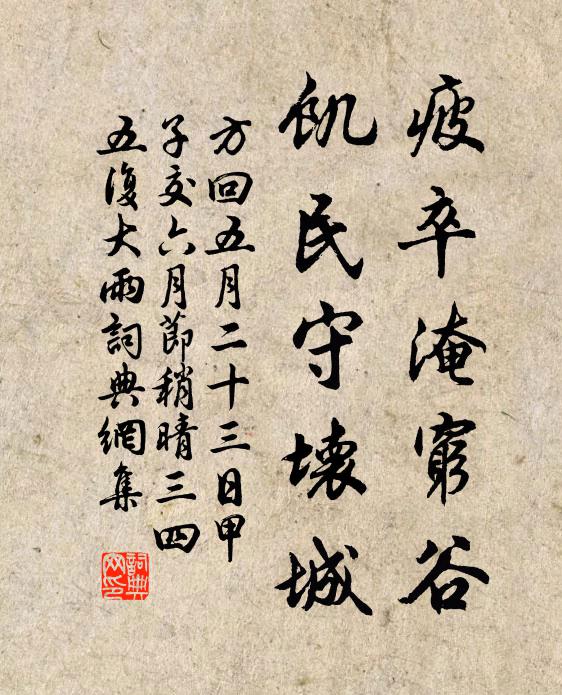 疲卒淹窮谷
飢民守壞城
方回五月二十三日甲
子交六月節稍晴三四
五復大雨詞典網集
詞典
网印